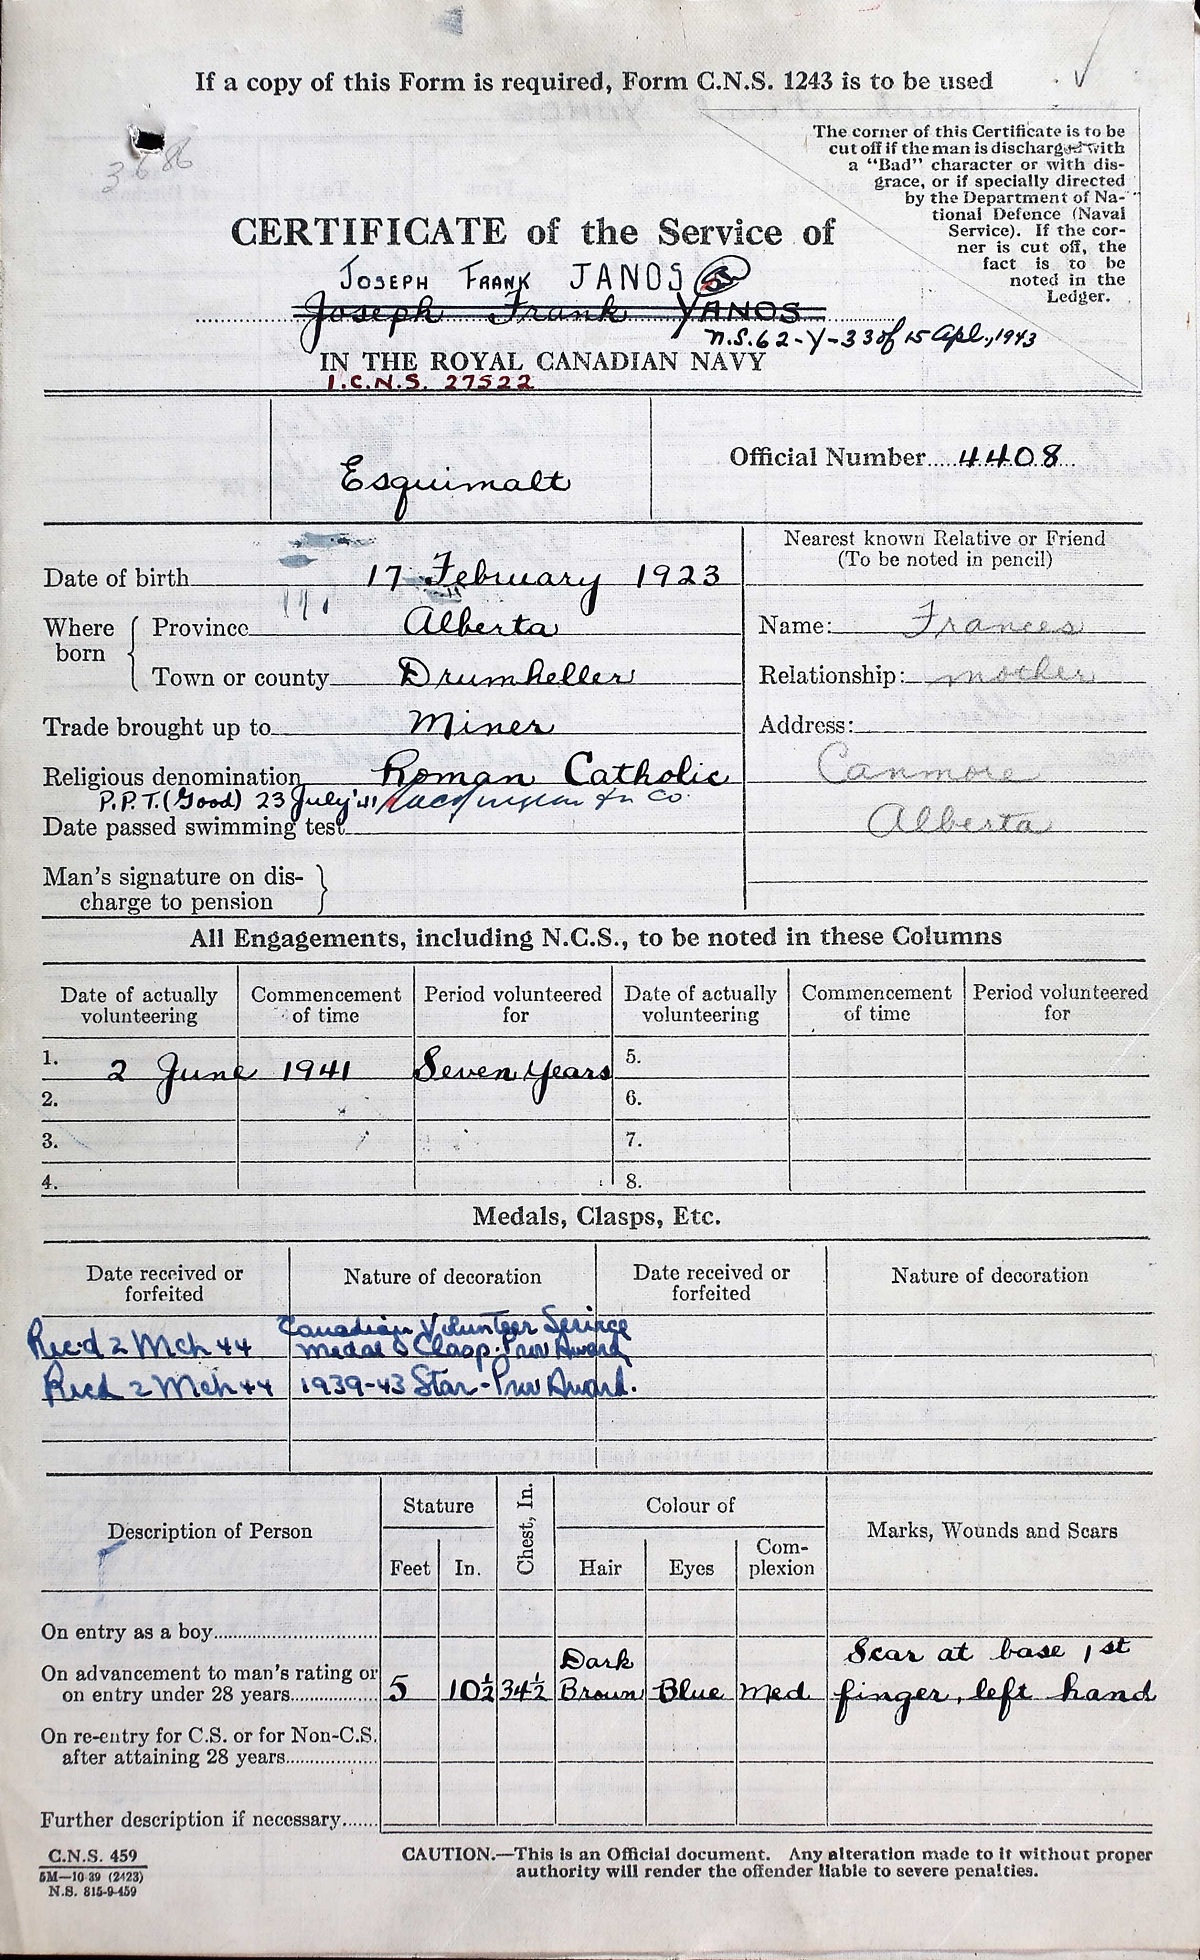 If a copy of this Form is required, Form C.N.S. 1243 is to be used
3686
The corner of this Certificate is to be
cut off if the man is discharged with
a "Bad" character or with dis-
grace, or if specially directed
by the Department of Na-
tional Defence (Naval
Service). If the cor-
ner is cut off, the
fact is to be
noted in the
Ledger.
CERTIFICATE of the Service of
JOSEPH FRANK JANOS
Joseph Frank YANOS
N.S. 62-Y-33 of 15 Apl., 1943
IN THE ROYAL CANADIAN NAVY
I.C.N.S. 27522
Esquimalt
Official Number 4408
Date of birth 17 February 1923
Where born
Province Alberta
Town or county Drumheller
Trade brought up to Miner
Religious denomination Roman Catholic
P.P.T. (Good) 23 July '41
Date passed swimming test
Man's signature on dis-
charge to pension
Nearest known Relative or Friend
(To be noted in pencil)
Name: Frances
Relationship: mother
Address:
Canmore
Alberta
All Engagements, including N.C.S., to be noted in these Columns
Date of actually volunteering Commencement of time Period volunteered for Date of actually volunteering Commencement of time Period volunteered for
1. 2 June 1941 Seven Years 5.
2. 6.
3. 7.
4. 8.
Medals, Clasps, Etc.
Date received or forfeited Nature of decoration Date received or forfeited Nature of decoration
Rec'd 2 Mch 44 Canadian Volunteer Service
Medal & Clasp. Prov Award
Recd 2 Mch 44 1939-43 Star - Prov Award.
Description of Person Stature Feet In. Chest, In. Colour of Hair Eyes Com-plexion Marks, Wounds and Scars
On entry as a boy
On advancement to man's rating or
on entry under 28 years 5 10½ 34½ Dark Brown Blue Med Scar at base 1st finger, left hand
On re-entry for C.S. or for Non-C.S.
after attaining 28 years
Further description if necessary
C.N.S. 459
5M—10-39 (2423)
N.S. 815-9-459
CAUTION.—This is an Official document. Any alteration made to it without proper
authority will render the offender liable to severe penalties.